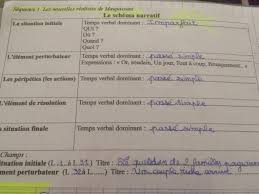 Séquence 1 Les nouvelles réalistes de Maupassant
Le schéma narratif
La situation initiale
Temps verbal dominant : Imparfait
QUI ?
Où ?
Quand ?
Quoi ?
L'élément perturbateur
Temps verbal dominant : passé simple
Expressions : « Or, soudain, Un jour, Tout à coup, Brusquement, »
Les péripéties (les actions)
Temps verbal dominant : passé simple
L'élément de résolution
Temps verbal dominant : passé simple
situation finale
Temps verbal dominant : passé simple
Champs :
Titre : Le quotidien de 2 familles
ment perturbateur Titre : Un couple riche